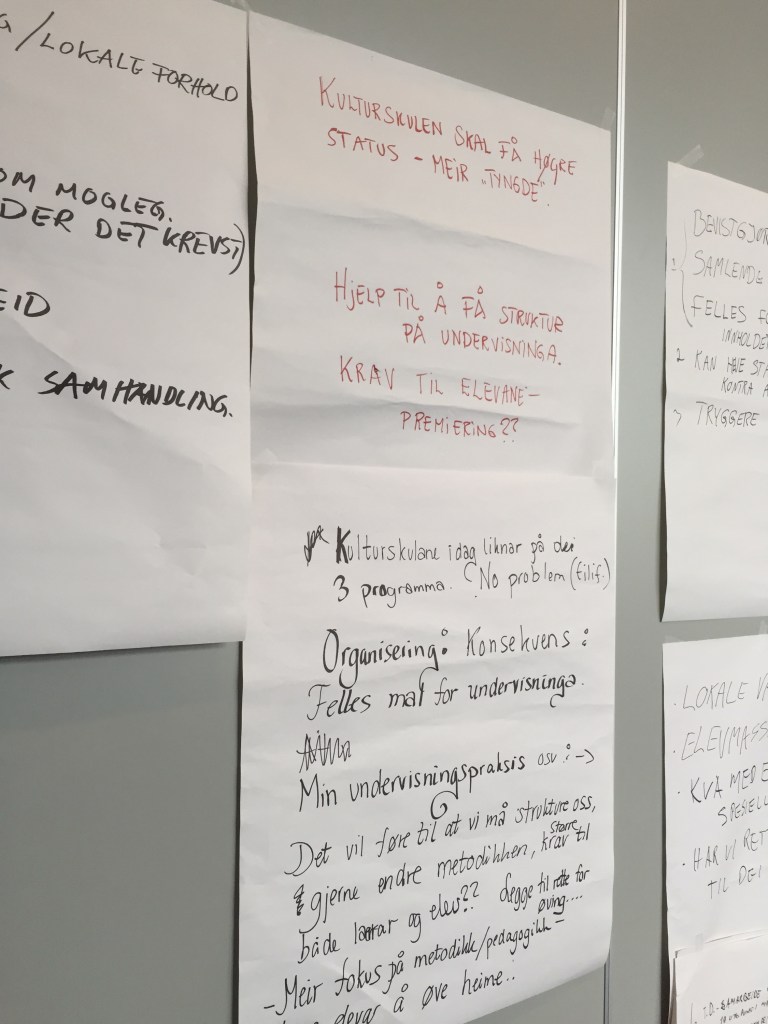 /LOKALE FORHOLD
OM MOGLEG.
DER DET KREVST)
EID
K SAMHANDLING.
KULTURSKULEN SKAL FÅ HØGRE
STATUS - MEIR "TYNGDE".
HJELP TIL Å FÅ STRUKTUR
PÅ UNDERVISNINGA.
KRAV TIL ELEVANE -
PREMIERING??
Kulturskulane i dag liknar på dei
3 programma. No problem (tilif.)
Organisering: Konsekvens:
Felles mal for undervisninga.
Min undervisningspraksis osv: ->
Det vil føre til at vi må strukture oss,
gjerne endre metodikken, større krav til
både lærar og elev?? Legge til rette for
øving....
- Meir fokus på metodikk/pedagogikk -
å øve heime..
BEVISTGJØR
1 SAMLENDE
FELLES FO
INNHOLDE
2 KAN HVE STA
KONTRA A
3 TRYGGERE
· LOKALE VA
· ELEVMASS
· KVA MED E
SPESIELL
· HAR VI RETT
TIL DEI
T.D. - SAMARBEIDE